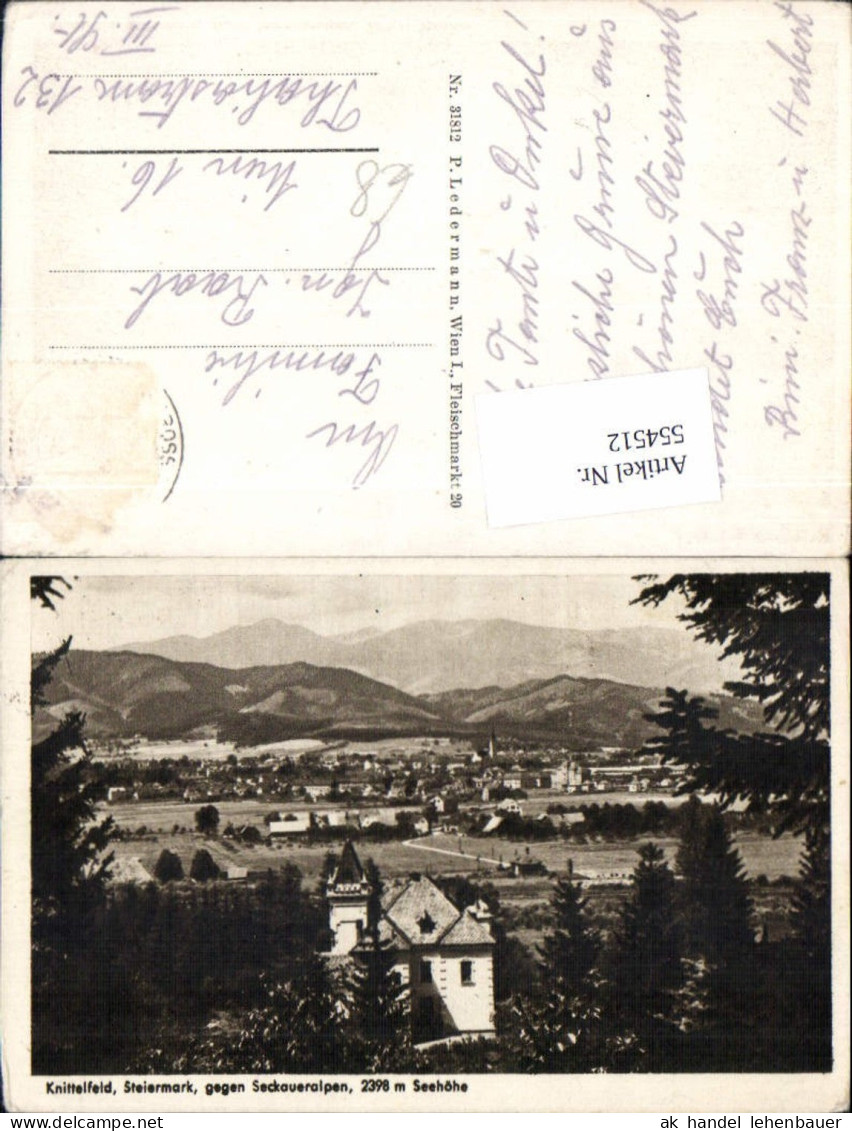 Tante u Onkel!
Grüsse aus
Steiermark
sendet Euch
Franz u Herbert
Nr. 31812 P. Ledermann, Wien I., Fleischmarkt 20
An
Familie
Joh. Raab
68
Wien 16.
Thaliastrasse 132
III. St.
Artikel Nr.
554512
Knittelfeld, Steiermark, gegen Seckaueralpen, 2398 m Seehöhe
www.delcampe.net
ak handel lehenbauer